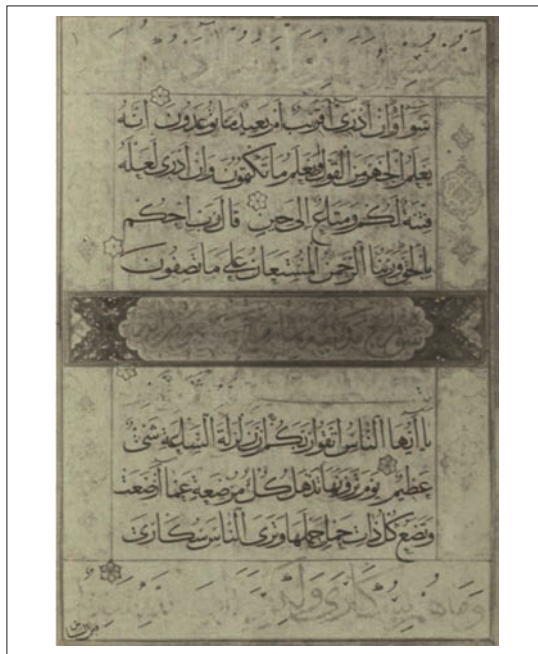 سَوَآءٍ وَاِنْ اَدْرِىٓ اَقَرِيبٌ اَمْ بَعِيدٌ مَا تُوعَدُونَ اِنَّهُ
يَعْلَمُ الْجَهْرَ مِنَ الْقَوْلِ وَيَعْلَمُ مَا تَكْتُمُونَ وَاِنْ اَدْرِى لَعَلَّهُ
فِتْنَةٌ لَكُمْ وَمَتَاعٌ اِلَى حِينٍ قَالَ رَبِّ احْكُمْ
بِالْحَقِّ وَرَبُّنَا الرَّحْمٰنُ الْمُسْتَعَانُ عَلَى مَا تَصِفُونَ
يَا اَيُّهَا النَّاسُ اتَّقُوا رَبَّكُمْ اِنَّ زَلْزَلَةَ السَّاعَةِ شَىْءٌ
عَظِيمٌ يَوْمَ تَرَوْنَهَا تَذْهَلُ كُلُّ مُرْضِعَةٍ عَمَّا اَرْضَعَتْ
وَتَضَعُ كُلُّ ذَاتِ حَمْلٍ حَمْلَهَا وَتَرَى النَّاسَ سُكَارَى
وَمَا هُمْ بِسُكَارَى وَلٰكِنَّ